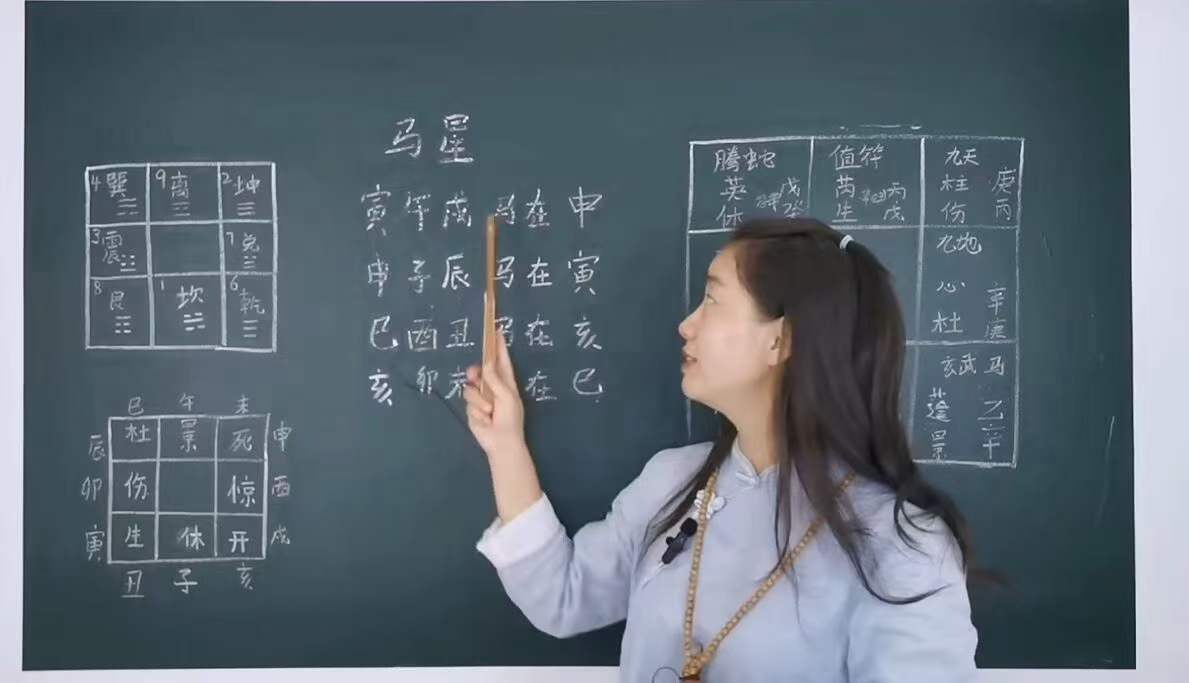 马星
寅午戌马在申
申子辰马在寅
巳酉丑马在亥
亥卯未 在巳
4巽 9离 2坤
3震 7兑
8艮 1坎 6乾
巳 午 未
辰 杜 景 死 申
卯 伤 惊 酉
寅 生 休 开 戌
丑 子 亥
腾蛇 值符 九天
英 戊 芮 丙 柱 庚
休 生 戊 伤 丙
九地
心 辛
杜 庚
玄武 马
蓬 乙
景 辛